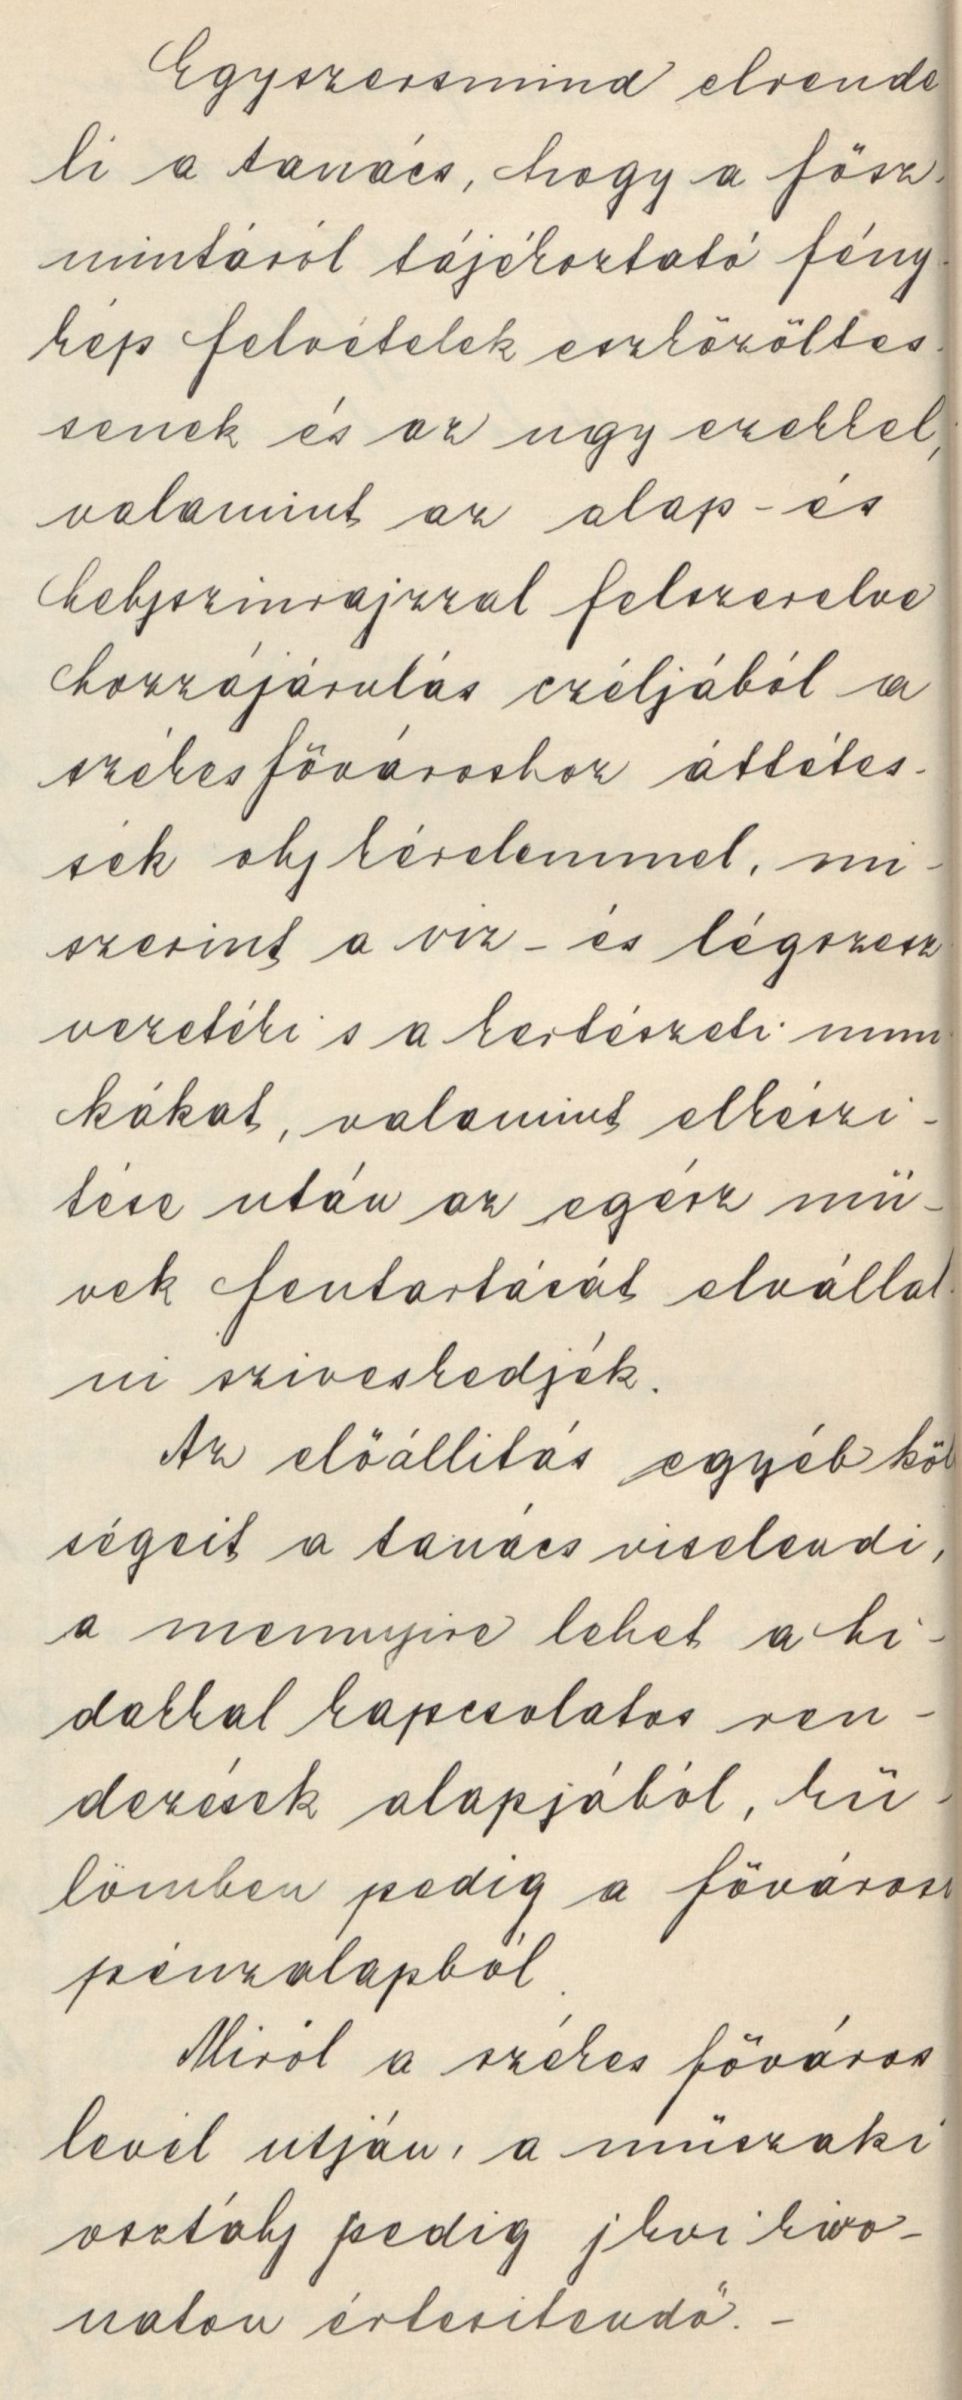 Egyszersmind elrende
li a tanács, hogy a gipsz-
mintáról tájékoztató fény-
kép felvételek eszközöltes-
senek és az ügy ezekkel,
valamint az alap- és
helyszinrajzzal felszerelve
hozzájárulás czéljából a
székesfővároshoz áttétes-
sék oly kérelemmel, mi-
szerint a viz- és légszesz
vezetéki s a kertészeti mun
kákat, valamint elkészi-
tése után az egész mü-
vek fentartását elvállal-
ni sziveskedjék.
Az előállitás egyéb költ
ségeit a tanács viselendi,
a mennyire lehet a hi-
dakkal kapcsolatos ren-
dezések alapjából, kü-
lömben pedig a fővárosi
pénzalapból.
Miről a székes főváros
levél utján, a müszaki
osztály pedig jkvi kivo-
naton értesitendő. -